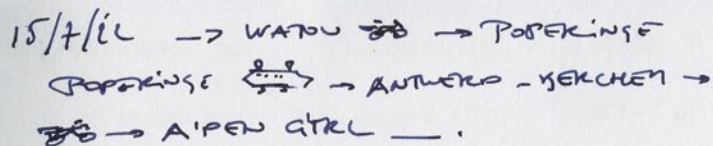 15/7/12 → WATOU → POPERINGE
POPERINGE → ANTWERP - BERCHEM →
→ A'PEN CTRL __.